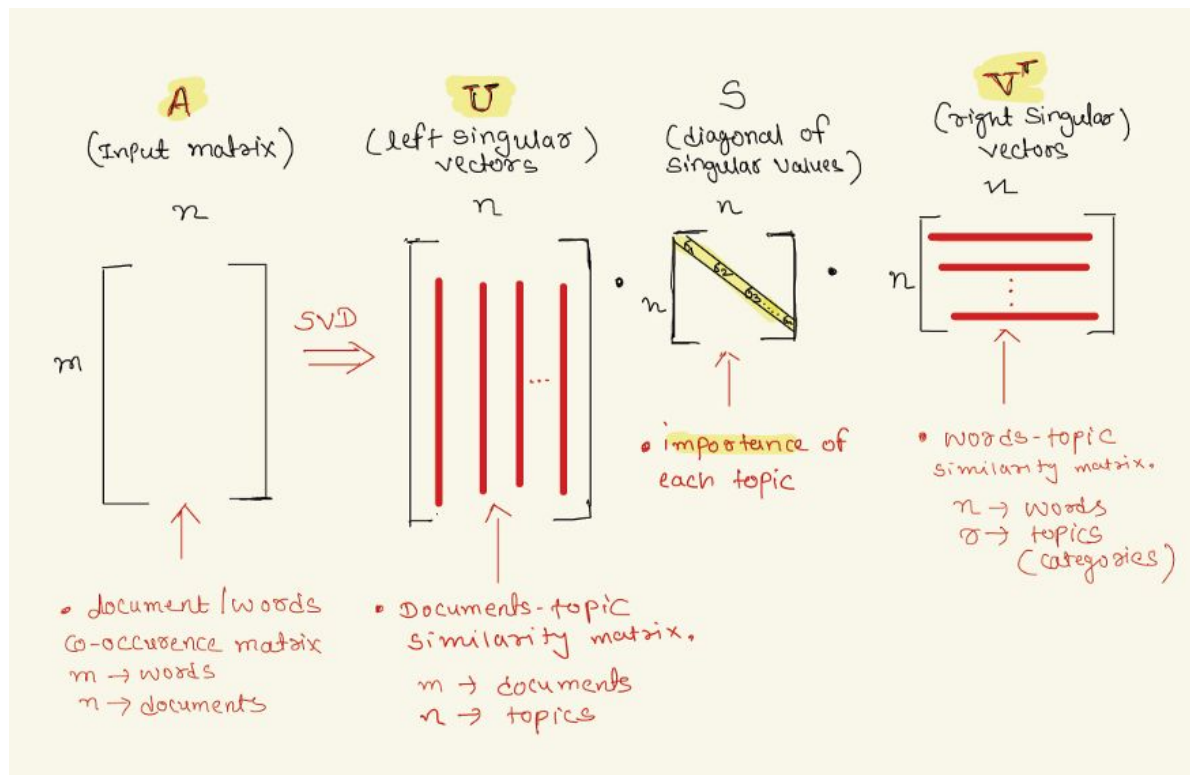 A
(Input matrix)
n
m
SVD
U
(left singular
vectors)
n
...
S
(diagonal of
singular values)
n
n
σ1 σ2 σ3....σn
V^T
(right singular)
vectors
n
n
• document/words
co-occurence matrix
m → words
n → documents
• Documents-topic
similarity matrix.
m → documents
n → topics
• importance of
each topic
• words-topic
similarity matrix.
n → words
r → topics
(categories)